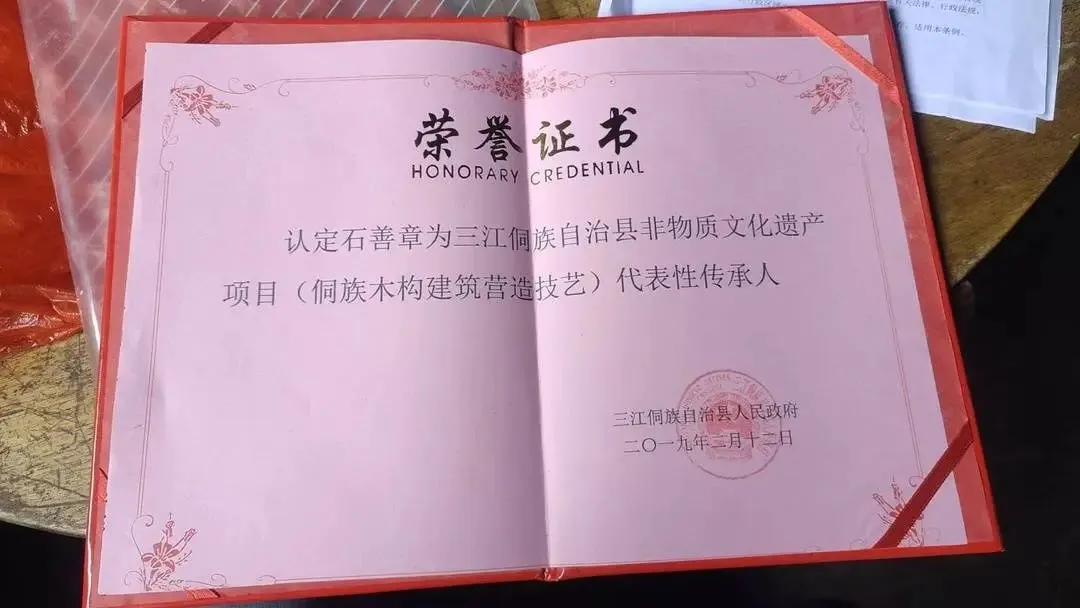 行政法规，
适用本条例。
荣誉证书
HONORARY CREDENTIAL
认定石善章为三江侗族自治县非物质文化遗产
项目（侗族木构建筑营造技艺）代表性传承人
三江侗族自治县人民政府
二〇一九年二月十二日